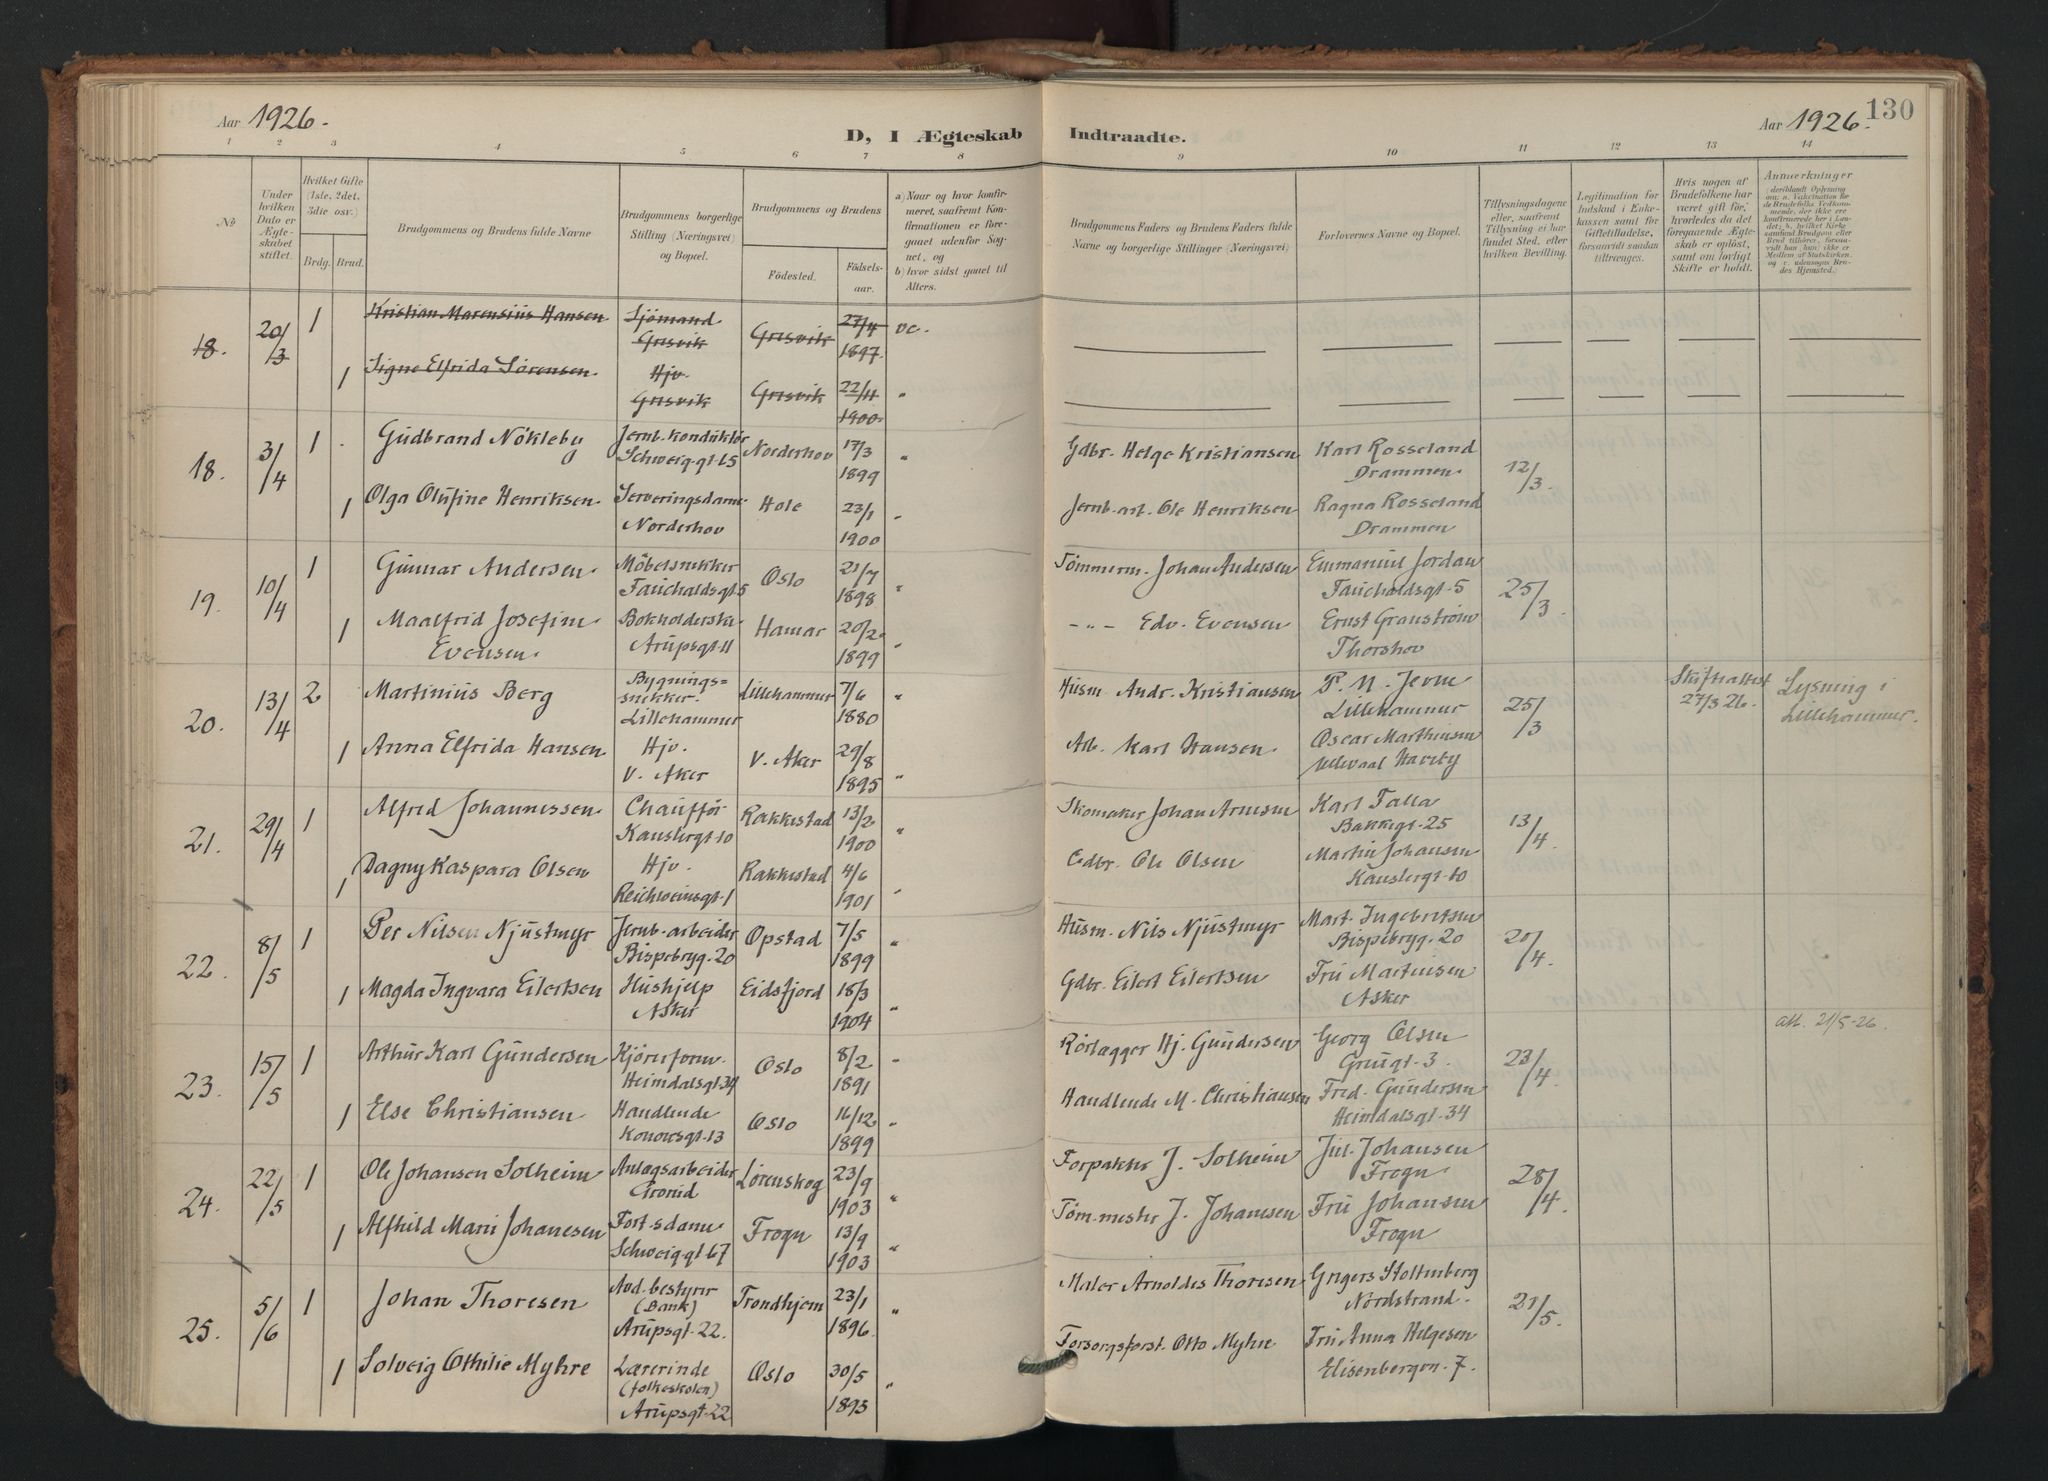 Aar 1926.
D, I Ægteskab
Indtraadte.
Aar 1926.
130
1 2 3 4 5 6 7 8
9 10 11 12 13 14
No
Under hvilken Dato er Ægteskabet stiftet.
Hvilket Gifte (1ste, 2det, 3die osv.)
Brdg. Brud.
Brudgommens og Brudens fulde Navne
Brudgommens borgerlige Stilling (Næringsvei) og Bopæl.
Brudgommens og Brudens
Fødested.
Fødselsaar.
a) Naar og hvor konfirmeret, saafremt Konfirmationen er foregaaet udenfor Sognet, og
b) hvor sidst gaaet til Alters.
Brudgommens Faders og Brudens Faders fulde Navne og borgerlige Stillinger (Næringsvei)
Forlovernes Navne og Bopæl.
Tillysningsdagene eller, saafremt Tillysning ei har fundet Sted, efter hvilken Bevilling.
Legitimation for Indskud i Enkekassen samt for Giftetilladelse, forsaavidt saadan tiltrænges.
Hvis nogen af Brudefolkene har været gift før, hvorledes da det foregaaende Ægteskab er opløst, samt om lovligt Skifte er holdt.
Anmerkninger
18. 20/3 1 Kristian Marensius Hansen Sjömand Grisvik Grisvik 27/4 1897 vc.
1 Signe Elfrida Sørensen Hjv. Grisvik Grisvik 22/11 1900 "
18. 3/4 1 Gudbrand Nökleby Jernb. konduktör Schweig.gt. 15 Norderhov 17/3 1899 " Gdbr. Helge Kristiansen Karl Rosseland Drammen 12/3.
1 Olga Olufine Henriksen Serveringsdame Norderhov Hole 23/1 1900 " Jernb.arb. Ole Henriksen Ragna Rosseland Drammen
19. 10/4 1 Gunnar Andersen Möbelsnekker Fauchaldsgt. 5 Oslo 21/7 1898 " Tömmerm. Johan Andersen Emmanuel Jordan Fauchaldsgt. 5 25/3
1 Maalfrid Josefine Evensen. Bokholderske Arupsgt. 11 Hamar 20/2 1899 " -"- Edv. Evensen Ernst Granström Thorshov
20. 13/4 2 Martinius Berg Bygningssnekker. Lillehammer Lillehammer 7/6 1880 " Husm. Andr. Kristiansen P. M. Lillehammer 25/3 Skifteattest 27/3 26. Lysning i Lillehammer.
1 Anna Elfrida Hansen Hjv. V. Aker V. Aker 29/8 1895 " Arb. Karl Hansen. Oscar Marthinsen Ullevaal Haveby
21. 29/4 1 Alfred Johannessen Chauffør Kanslergt. 10 Rakkestad 13/2 1900 " Skomaker Johan Arnesen Karl Talla Bakkegt. 25 13/4
1 Dagny Kaspara Olsen Hjv. Reichweinsgt. 1 Rakkestad 4/6 1901 " Gdbr. Ole Olsen Martin Johansen Kanslergt. 10
22. 8/5 1 Per Nilsen Njustmyr Jernb. arbeider Bispebryg. 20 Opstad 7/5 1899 " Husm. Nils Njustmyr Mart. Ingebretsen Bispebryg. 20 20/4
1 Magda Ingvara Eilertsen Hushjelp Asker Eidsfjord 18/3 1904 " Gdbr. Eilert Eilertsen Fru Martinsen Asker
23. 15/5 1 Arthur Karl Gundersen Kjöreforv. Heimdalsgt. 34 Oslo 8/2 1891 " Rörlægger Hj. Gundersen Georg Olsen Gruegt. 3. 23/4 att. 21/5-26.
1 Else Christiansen Handlende Konowsgt. 13 Oslo 16/12 1899 " Handlende M. Christiansen Fred. Gundersen Heimdalsgt. 34
24. 22/5 1 Ole Johansen Solheim Anlægsarbeider Grorud Lørenskog 23/9 1903 " Forpakter J. Solheim Jul. Johansen Frogn 28/4.
1 Alfhild Marie Johanesen Fort.sdame Schweig.gt. 67 Frogn 13/9 1903 " Töm.mester J. Johanesen Fru Johansen Frogn
25. 5/6 1 Johan Thoresen Avd.bestyrer (Bank) Arupsgt. 22. Trondhjem 23/1 1896. " Maler Arnoldes Thoresen Grigers Stoltenberg Nordstrand. 21/5.
1 Solveig Othilie Myhre Lærerinde (folkeskolen) Arupsgt. 22 Oslo 30/5 1893 " Forsorgsforst. Otto Myhre Fru Anna Helgesen Elisenbergvn. 7.